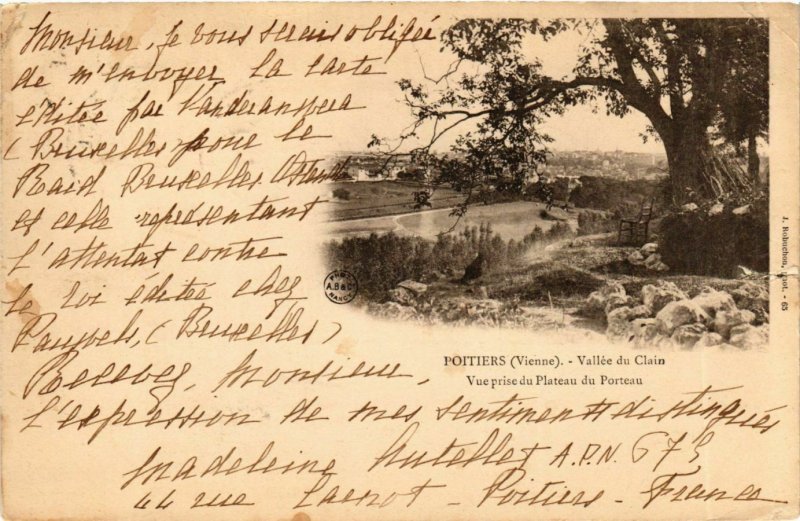 Monsieur, je vous serais obligée
de m'envoyer la carte
éditée par Vanderauwera
(Bruxelles pour le
Raid Bruxelles Ostende
et celle représentant
l'attentat contre
le roi éditée chez
Pauwels, (Bruxelles)
Recevez, Monsieur,
l'expression de mes sentiments distingués
Madeleine Autellet A.P.N. 675
44 rue Carnot - Poitiers - France
PHOT
A.B & Cº
NANCY
J. Robuchon, phot. - 65
POITIERS (Vienne). - Vallée du Clain
Vue prise du Plateau du Porteau